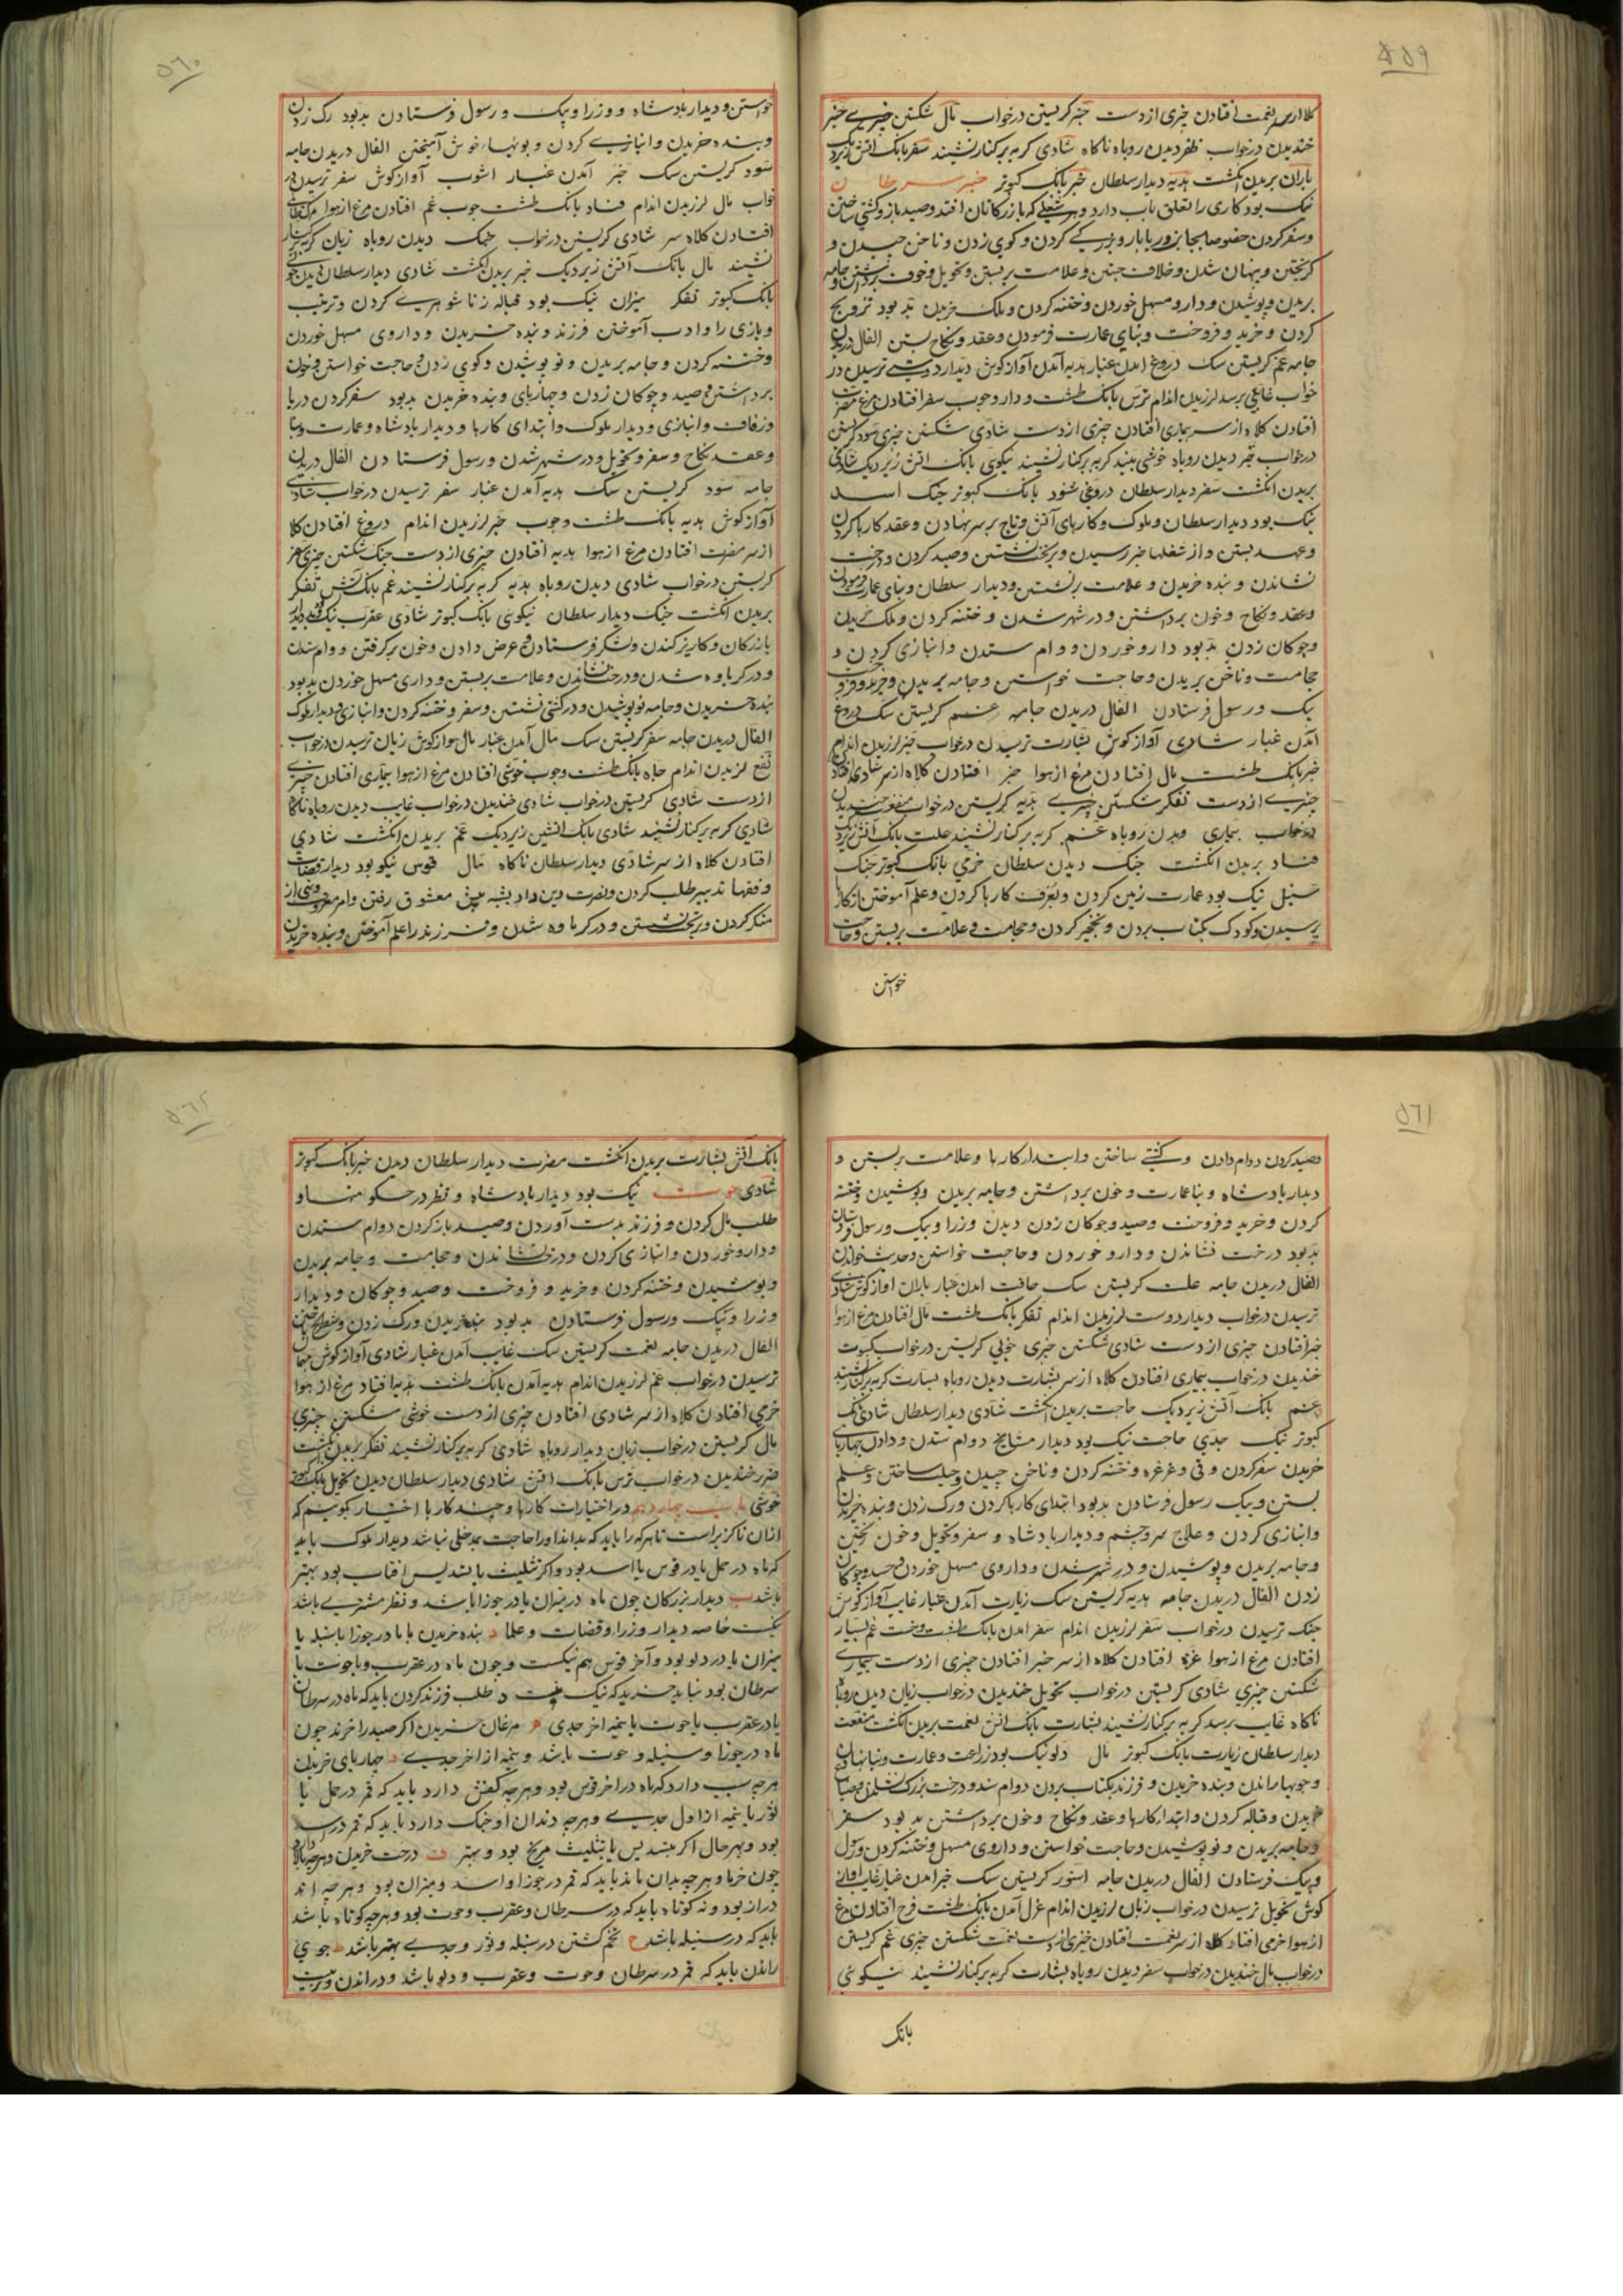 ۵۵۹
کلاه از سر نعمت افتادن چیزی از دست خبر کریستن در خواب مال شکستن چیزی خبر
خندیدن در خواب ظفر دیدن روباه ناکاه شادی کربه بر کنار نشیند سفر بانک آتش زیر دیک
باران بریدن انکشت هدیه دیدار سلطان خبر بانک کبوتر خبر سرطان
نیک بود کاری را تعلق بآب دارد و هر شغلی که بازرکانان افتد و صید باز و کشتی ساختن
و سفر کردن خصوصا بجانب دریا بار و بزرکی کردن و کوی زدن و ناخن چیدن و
کریختن و پنهان شدن و خلاف جستن و علامت بر بستن و تحویل و خوف
بریدن و پوشیدن و دارو مسهل خوردن و ختنه کردن و ملک خریدن بد بود تزویج
کردن و خرید و فروخت و بنای عمارت فرمودن و عقد و نکاح بستن الفال دریدن
جامه غم کریستن سک دروغ آمدن غبار هدیه آمدن آواز کوش دیدار دوستی ترسیدن در
خواب غایبی برسد لرزیدن اندام ترس بانک طشت و دار و چوب سفر افتادن مرغ مضرت
افتادن کلاه از سر بیماری افتادن چیزی از دست شادی شکستن چیزی سود کریستن
در خواب خبر دیدن روباه خوشی بیند کربه بر کنار نشیند نیکوی بانک آتش زیر دیک شادی
بریدن انکشت سفر دیدار سلطان دروغی شنود بانک کبوتر جنک اسد
نیک بود دیدار سلطان و ملوک و کارهای آتش و تاج بر سر نهادن و عقد کارها کردن
و عهد بستن و از شغلها خبر رسیدن و بر تخت نشستن و صید کردن و درخت
نشاندن و بنده خریدن و علامت بر بستن و دیدار سلطان و بنای عمارت فرمودن
و عقد و نکاح و خون برداشتن و در شهر شدن و ختنه کردن و ملک خریدن
و چوکان زدن بد بود دارو خوردن و وام ستدن و انبازی کردن و
حجامت و ناخن بریدن و حاجت خواستن و جامه بریدن و خرید و فروخت
پیک و رسول فرستادن الفال دریدن جامه غم کریستن سک دروغ
آمدن غبار شادی آواز کوش بشارت ترسیدن در خواب خبر لرزیدن اندام
خبر بانک طشت مال افتادن مرغ از هوا خبر افتادن کلاه از سر شادی افتادن
چیزی از دست تفکر شکستن چیزی هدیه کریستن در خواب منفعت خندیدن
در خواب بیماری دیدن روباه غم کربه بر کنار نشیند علت بانک آتش زیر دیک
فساد بریدن انکشت جنک دیدن سلطان خرمی بانک کبوتر جنک
سنبل نیک بود عمارت زمین کردن و تعرف کارها کردن و علم آموختن از کار
پرسیدن و کودک بکتاب بردن و نخجیر کردن و حجامت و علامت بر بستن و حاجت
خواستن
۵۶۰
خواستن و دیدار پادشاه و وزرا و پیک و رسول فرستادن بد بود رک زدن
و بنده خریدن و انبازی کردن و بویها خوش آمیختن الفال دریدن جامه
سود کریستن سک خبر آمدن غبار آشوب آواز کوش سفر ترسیدن در
خواب مال لرزیدن اندام فساد بانک طشت چوب غم افتادن مرغ از هوا
افتادن کلاه سر شادی کریستن در خواب جنک دیدن روباه زیان کربه بر کنار
نشیند مال بانک آتش زیر دیک خبر بریدن انکشت شادی دیدار سلطان
بانک کبوتر تفکر میزان نیک بود قباله زناشوهری کردن و ترتیب
و بازی را و ادب آموختن فرزند و بنده خریدن و داروی مسهل خوردن
و ختنه کردن و جامه بریدن و نو پوشیدن و کوی زدن و حاجت خواستن و خون
برداشتن و صید و چوکان زدن و چهارپای و بنده خریدن بد بود سفر کردن دریا
و زفاف و انبازی و دیدار ملوک و ابتدای کارها و دیدار پادشاه و عمارت و بنا
و عقد نکاح و سفر و تحویل و در شهر شدن و رسول فرستادن الفال دریدن
جامه سود کریستن سک هدیه آمدن غبار سفر ترسیدن در خواب شادی
آواز کوش هدیه بانک طشت و چوب خبر لرزیدن اندام دروغ افتادن کلاه
از سر مضرت افتادن مرغ از هوا هدیه افتادن چیزی از دست جنک شکستن چیزی
کریستن در خواب شادی دیدن روباه هدیه کربه بر کنار نشیند غم بانک آتش تفکر
بریدن انکشت جنک دیدار سلطان نیکوی بانک کبوتر شادی عقرب نیک بود دیدار
بازرکان و کاریز کندن و لشکر فرستادن و عرض دادن و خون بر کرفتن و وام ستدن
و در کرماوه شدن و درخت نشاندن و علامت بر بستن و داری مسهل خوردن بد بود
بنده خریدن و جامه نو پوشیدن و در کشتی نشستن و سفر و ختنه کردن و انبازی و دیدار ملوک
الفال دریدن جامه سفر کریستن سک مال آمدن غبار مال آواز کوش زیان ترسیدن در خواب
نفع لرزیدن اندام جاه بانک طشت و چوب خوشی افتادن مرغ از هوا بیماری افتادن چیزی
از دست شادی کریستن در خواب شادی خندیدن در خواب غایب دیدن روباه ناکاه
شادی کربه بر کنار نشیند شادی بانک آتشین زیر دیک غم بریدن انکشت شادی
افتادن کلاه از سر شادی دیدار سلطان ناکاه مال قوس نیکو بود دیدار قضات
و فقها تدبیر طلب کردن و نصرت دین و اندیشه پیش معشوق رفتن و امر معروف و نهی از
منکر کردن و بر تخت نشستن و در کرماوه شدن و فرزند را علم آموختن و بنده خریدن
۵۶۱
و صید کردن و وام دادن و کشتی ساختن و ابتدا کارها و علامت بر بستن و
دیدار پادشاه و بنا عمارت و خون برداشتن و جامه بریدن و پوشیدن و ختنه
کردن و خرید و فروخت و صید و چوکان زدن دیدن وزرا و پیک و رسول فرستادن
بد بود درخت نشاندن و دارو خوردن و حاجت خواستن و حدیث خواندن
الفال دریدن جامه علت کریستن سک حاجت آمدن غبار باران آواز کوش شادی
ترسیدن در خواب دیدار دوست لرزیدن اندام تفکر بانک طشت مال افتادن مرغ از هوا
خبر افتادن چیزی از دست شادی شکستن چیزی خوبی کریستن در خواب
خندیدن در خواب بیماری افتادن کلاه از سر بشارت دیدن روباه بشارت کربه بر کنار نشیند
غم بانک آتش زیر دیک حاجت بریدن انکشت شادی دیدار سلطان شادی بانک
کبوتر نیک جدی حاجت نیک بود دیدار مشایخ و وام ستدن و دادن چهارپای
خریدن سفر کردن و قی و غرغره و ختنه کردن و ناخن چیدن و حیله ساختن و علم
بستن و پیک رسول فرستادن بد بود ابتدای کارها کردن و رک زدن و بنده خریدن
و انبازی کردن و علاج سر و چشم و دیدار پادشاه و سفر و تحویل و خون
و جامه بریدن و پوشیدن و در شهر شدن و داروی مسهل خوردن و صید و چوکان
زدن الفال دریدن جامه هدیه کریستن سک زیارت آمدن غبار غایب آواز کوش
جنک ترسیدن در خواب سفر لرزیدن اندام سفر آمدن بانک طشت و تخت غم بسیار
افتادن مرغ از هوا افتادن کلاه از سر خبر افتادن چیزی از دست بیماری
شکستن چیزی شادی کریستن در خواب تحویل خندیدن در خواب زیان دیدن روباه
ناکاه غایب برسد کربه بر کنار نشیند بشارت بانک آتش نعمت بریدن انکشت منفعت
دیدار سلطان زیارت بانک کبوتر مال دلو نیک بود زراعت و عمارت و بنا نهادن
و جویها راندن و بنده خریدن و فرزند بکتاب بردن و وام ستدن و درخت بزرک نشاندن
خریدن و قباله کردن و ابتدا کارها و عقد و نکاح و خون برداشتن بد بود سفر
و جامه بریدن و نو پوشیدن و حاجت خواستن و داروی مسهل و ختنه کردن و رسول
و پیک فرستادن الفال دریدن جامه کریستن سک خبر آمدن غبار غایب آواز
کوش تحویل ترسیدن در خواب زیان لرزیدن اندام آمدن بانک طشت فرح افتادن مرغ
از هوا خرمی افتاد کلاه از سر نعمت افتادن چیزی از دست نعمت شکستن چیزی غم کریستن
در خواب مال خندیدن در خواب سفر دیدن روباه بشارت کربه بر کنار نشیند نیکوئی
بانک
۵۶۲
بانک آتش بشارت بریدن انکشت مضرت دیدار سلطان دیدن خبر بانک کبوتر
شادی حوت نیک بود دیدار پادشاه و نظر در حکومتها و
طلب مال کردن و فرزند بدست آوردن و صید باز کردن و وام ستدن
و دارو خوردن و انبازی کردن و درخت نشاندن و حجامت و جامه بریدن
و پوشیدن و ختنه کردن و خرید و فروخت و صید و چوکان و دیدار
وزرا و پیک و رسول فرستادن بد بود بنده خریدن و رک زدن و
الفال دریدن جامه نعمت کریستن سک غایب آمدن غبار شادی آواز کوش
ترسیدن در خواب غم لرزیدن اندام هدیه آمدن بانک طشت هدیه افتاد مرغ از هوا
خرمی افتادن کلاه از سر شادی افتادن چیزی از دست خوشی شکستن چیزی
مال کریستن در خواب زیان دیدار روباه شادی کربه بر کنار نشیند تفکر بریدن انکشت
ضرر خندیدن در خواب ترس بانک آتش شادی دیدار سلطان دیدن تحویل بانک کبوتر
خوشی باب چهاردهم در اختیارات کارها و چند کارها اختیار کوییم که
از آن ناکزیر است تا هر که را باید که بداند او را حاجت بمدخلی نباشد دیدار ملوک باید
که ماه در حمل یا در قوس یا اسد بود و اکر تثلیث یا تسدیس آفتاب بود بهتر
باشد ب دیدار بزرکان چون ماه در میزان یا در جوزا باشد و نظر مشتری باشد
نیکست خاصه دیدار وزرا و قضات و علما د بنده خریدن یا ما در جوزا یا سنبله یا
میزان یا در دلو بود و آخر قوس هم نیکست و چون ماه در عقرب و یا حوت یا
سرطان بود نباید خرید که نیک نیست د طلب فرزند کردن باید که ماه در سرطان
یا در عقرب یا حوت یا نیمه آخر جدی ه مرغان خریدن اکر صید را خرند چون
ماه در جوزا و سنبله و حوت باشد و نیمه از آخر جدی و چهارپای خریدن
هر چه سب دارد که ماه در آخر قوس بود و هر چه کفش دارد باید که قمر در حمل یا
ثور یا نیمه از اول جدی و هر چه دندان او خبک دارد باید که قمر در اسد
بود و بهر حال اکر بتسدیس یا بتثلیث مریخ بود و بهتر ز درخت خریدن و هر چه بالا دارد
چون خرما و هر چه بدان ماند باید که قمر در جوزا و اسد و میزان بود و هر چه نه
دراز بود و نه کوتاه باید که در سرطان و عقرب و حوت بود و هر چه کوتاه باشد
باید که در سنبله باشد ح تخم کشتن در سنبله و ثور و جدی بهتر باشد ط جوی
راندن باید که قمر در سرطان و حوت و عقرب و دلو باشد و در اندن